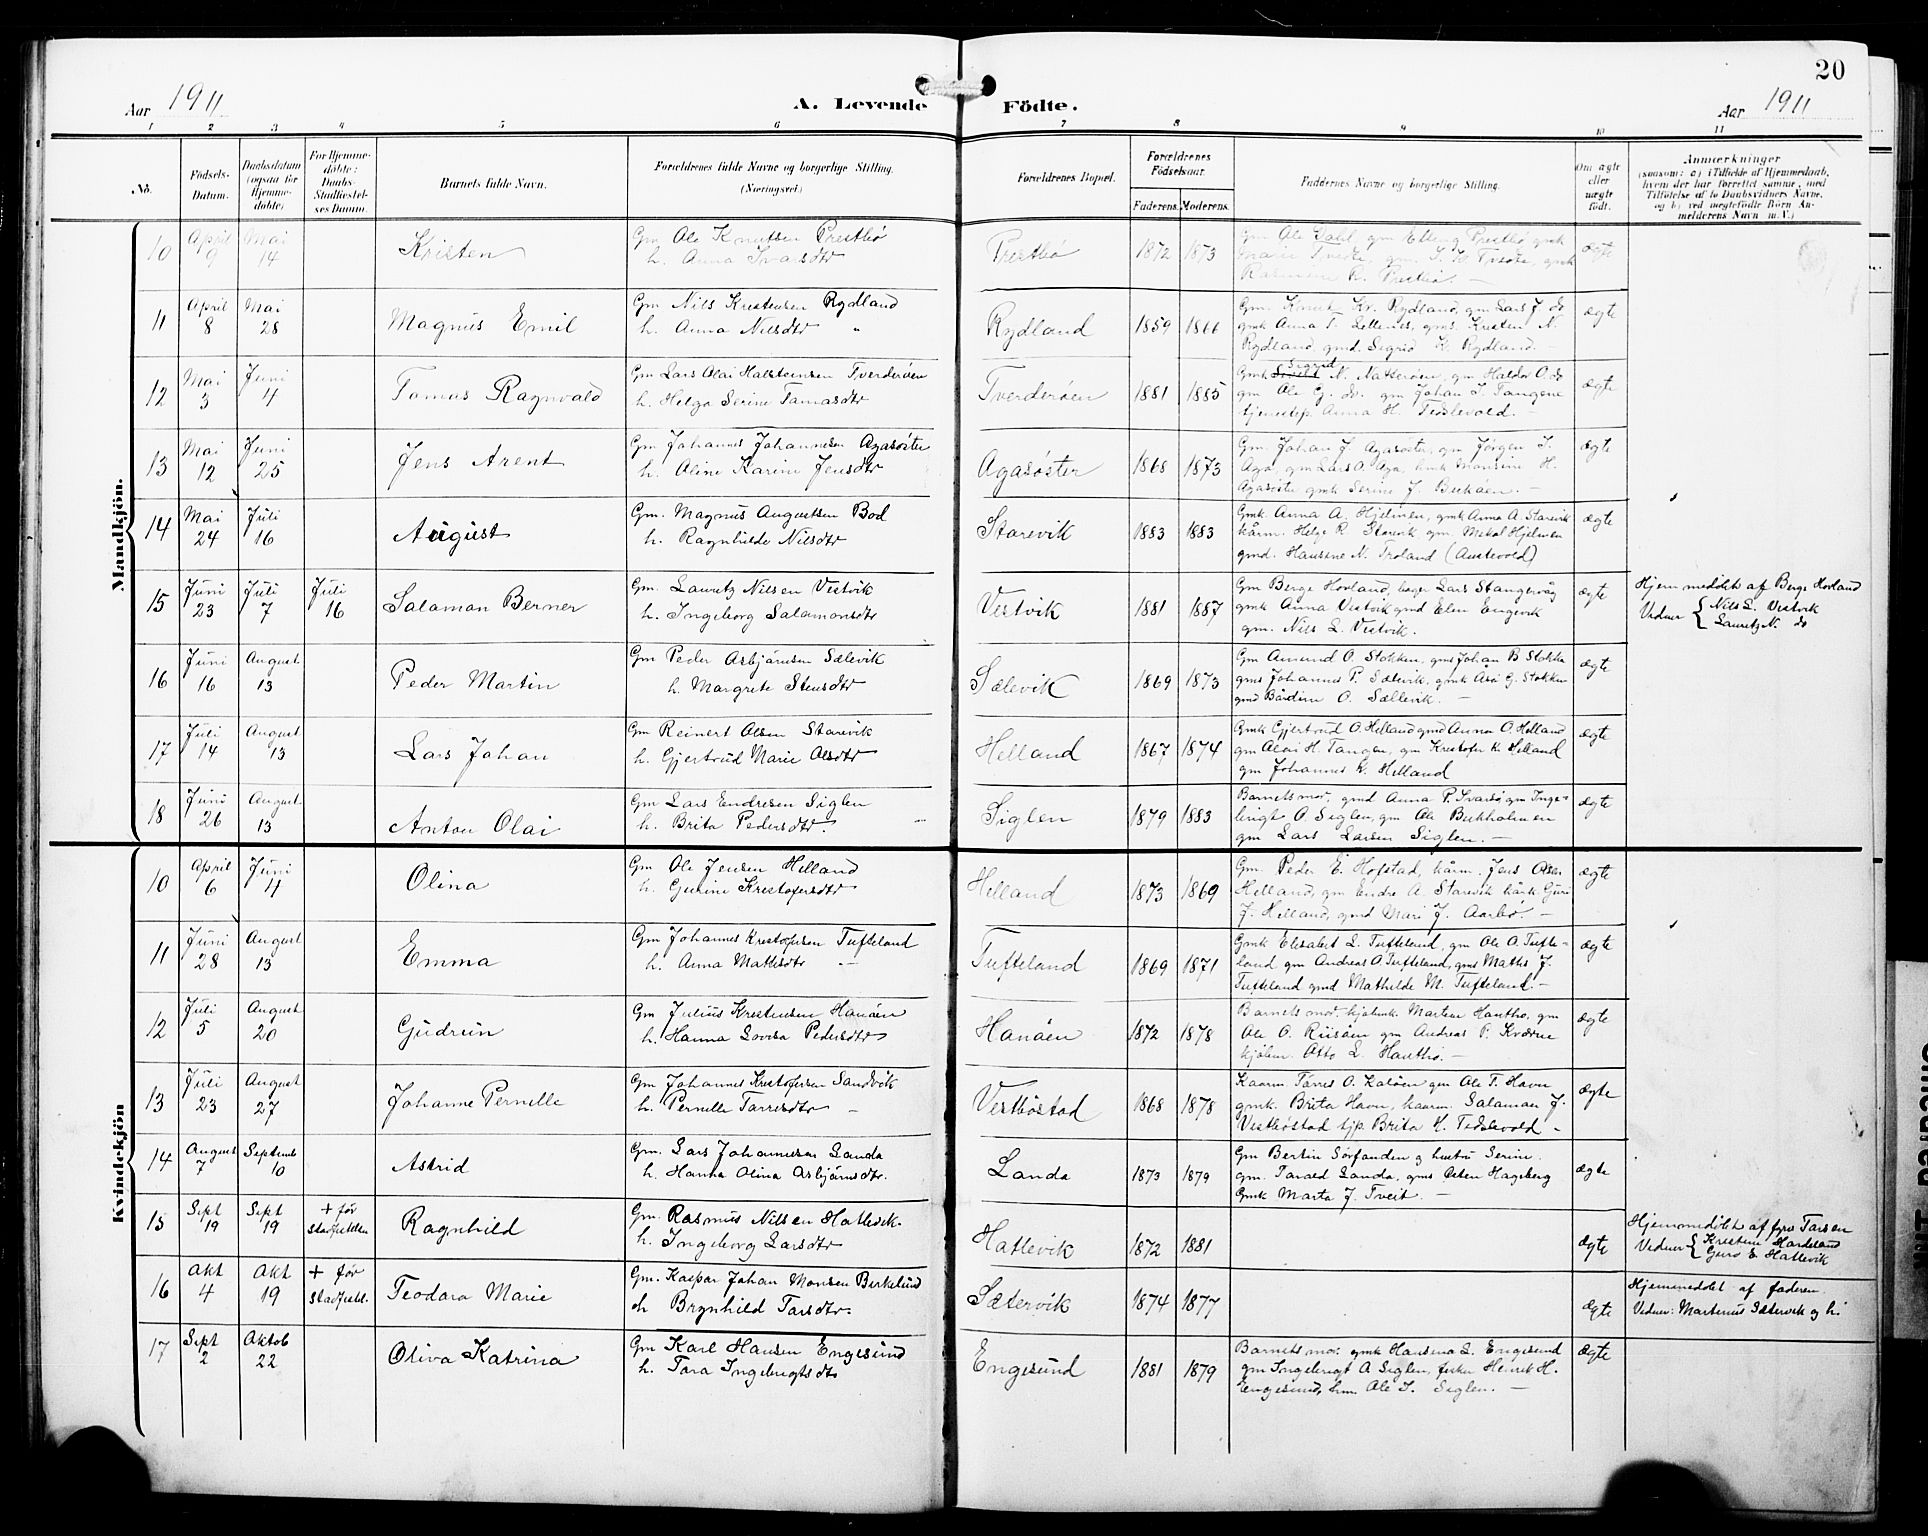 20
Aar 1911
A. Levende Födte.
Aar 1911
1 2 3 4 5 6 7 8 9 10 11
No.
Födsels-Datum.
Daabsdatum (ogsaa for Hjemme-döbte)
For Hjemme-döbte: Daabs-Stadfæstel-ses Datum.
Barnets fulde Navn.
Forældrenes fulde Navne og borgerlige Stilling. (Næringsvei.)
Forældrenes Bopæl.
Forældrenes Födselsaar.
Faderens. Moderens.
Faddernes Navne og borgerlige Stilling.
Om ægte eller uægte födt.
Anmærkninger
(saasom: a) i Tilfælde af Hjemmedaab, hvem der har forrettet samme, med Tilföielse af to Daabsvidners Navne, og b) ved uægtefödte Börn An-melderens Navn m. V.)
Mandkjön.
10 April 9 Mai 14 Kristen
Gm Ole Knutsen Prestbö
h. Anna Ivarsdtr
Prestbö 1872 1873
Gm Ole Dahl, gm Elling Prestbö gmk
ægte
11 April 8 Mai 28 Magnus Emil
Gm Nils Kristensen Rydland
h. Anna Nilsdtr "
Rydland 1859 1866
Gm. Knut Kr. Rydland, gm Lars J. do
gmk Anna T. Lellenes, gms. Kristen N.
Rydland, gmd. Sigrid K. Rydland. –
ægte
12 Mai 3 Juni 4 Tomas Ragnvald
Gm Lars Olai Halsteinsen Tverderöen
h. Helga Serine Tomasdtr
Tverderöen 1881 1885
Gmk Sigrid N. Natteröen, gm Haldor O. do
gm Ole G. do. gm Johan I. Tangene
tjenestep. Anna H. Tedslevold. –
ægte
13 Mai 12 Juni 25 Jens Arent
Gm Johannes Johannesen Agasöster
h. Aline Karine Jensdtr
Agasöster 1868 1873
Gm. Johan J. Agasöster, gm Jörgen I.
Aga, gm Lars O. Aga, gmk Monsine H.
Agasöster gmk Serine J. Beköen. –
ægte
14 Mai 24 Juli 16 August
Gm. Magnus Augustsen Bod
h. Ragnhilde Nilsdtr
Starevik 1883 1883
Gmk. Anna A. Hjelmen, gmk Anna A. Starevik
kårm. Helge R. Starevik, gm. Mekal Hjelmen
gmd. Hansene N. Troland (Austevold)
ægte
15 Juni 23 Juli 7 Juli 16 Salamon Berner
Gm. Lauritz Nilsen Vestvik
h. Ingeborg Salamonsdtr
Vestvik 1881 1887
Gm Berge Hovland, Lars Stangervåg
gmk Anna Vestvik gmd Elen Engevik
gm. Nils L. Vestvik.
ægte
Hjemmedöbt af Berge Hovland
Vidner { Nils L. Vestvik
Lauritz N. do
16 Juni 16 August 13 Peder Martin
Gm Peder Asbjörnsen Sælevik
h. Margrete Stensdtr
Sælevik 1869 1873
Gm Amund O. Stokken, gms Johan B Stokke
gms Johannes P. Sælevik, gmk Åsa G. Stokken
gmd Bårdine O. Sællevik. –
ægte
17 Juli 14 August 13 Lars Johan
Gm Reinert Olsen Starevik
h. Gjertrud Marie Olsdtr
Helland 1867 1874
Gmk Gjertrud O. Helland gmd Anna O. Helland
gm Olai H. Tangen, gm Kristofer K. Helland
gm Johannes K. Helland
ægte
18 Juni 26 August 13 Anton Olai
Gm Lars Endresen Siglen
h. Brita Pedersdtr.
Siglen 1879 1883
Barnets mor, gmd Anna P. Svarbö gm Inge-
brigt O. Siglen, gm Ole Bekholmen
gm Lars Larsen Siglen. –
ægte
Kvindekjön
10 April 6 Juni 4 Olina
Gm Ole Jensen Helland
h. Gurine Kristofersdtr
Helland 1873 1869
Gm. Peder E. Hofstad, kårm. Jens Olsen
Helland, gm Endre A. Starevik kårk. Guri
J. Helland, gmd Mari J. Aarbö. –
ægte
11 Juni 28 August 13 Emma
Gm Johannes Kristofersen Tufteland
h. Anna Mattisdtr –
Tufteland 1869 1871
Gmk Elisabet L. Tufteland, gm Ole A. Tufte-
land gm Andreas A Tufteland, gms Mathis J.
Tufteland gmd Mathilde M. Tufteland. –
ægte
12 Juli 5 August 20 Gudrun
Gm Julius Kristensen Hanöen
h. Hanna Lovisa Pedersdtr
Hanöen 1872 1878
Barnets mor kjöbmk Martine Hantho, gm
Ole O. Riisöen gm Andreas P. Kværne
kjöbm. Otto L. Hantho. –
ægte
13 Juli 23 August 27 Johanne Pernille
Gm Johannes Kristofersen Sandvik
h. Pernille Tarresdtr –
Vestböstad 1868 1878
Kaarm. Törres O. Kalöen gm Ole T. Havn
gmk. Brita Havn, kaarm. Salaman J.
Vestböstad tjp. Brita K. Tedslevold –
ægte
14 August 7 Septemb 10 Astrid
Gm. Lars Johannesen Landa
h. Hanna Olina Asbjörnsdtr.
Landa 1873 1879
Gm Bertin Sörfonden og hustru Serine
gm. Tarald Landa, gms Osten Hageberg
Gmk Marta J. Tveit. –
ægte
15 Sept 19 Sept 19 + för stadfestelsen Ragnhild
Gm. Rasmus Nilsen Hatlevik.
h. Ingeborg Larsdtr
Hatlevik 1872 1881
ægte
Hjemmedöbt af fru Tarsen
Vidner { Kristine Hordeland
Guro E. Hatlevik
16 Okt 4 Okt 19 + för stadfest. Teodora Marie
Gm. Kaspar Johan Monsen Birkelund
h Brynhild Tarsdtr.
Sætervik 1874 1877
ægte
Hjemmedöbt af faderen.
Vidner: Martinus Sætervik og h.
17 Sept 2 Oktob 22 Oliva Katrina
Gm Karl Hansen Engesund
h. Tara Ingebrigtsdtr
Engesund 1881 1879
Barnets mor. gmk Hansena S. Engesund
gm Ingebrigt A Siglen, fisker Henrik H.
Engesund, hm Ole I. Siglen. –
ægte